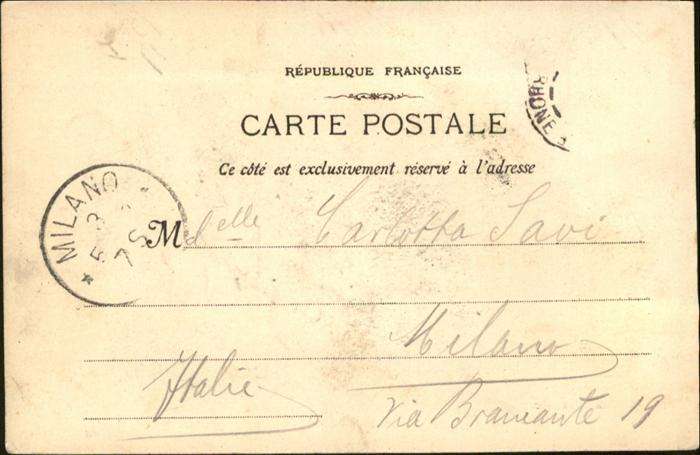 RÉPUBLIQUE FRANÇAISE
CARTE POSTALE
Ce côté est exclusivement réservé à l'adresse
MILANO
5 - 3
M delle Carlotta Savi
Milano
Italie
Via Bramante 19